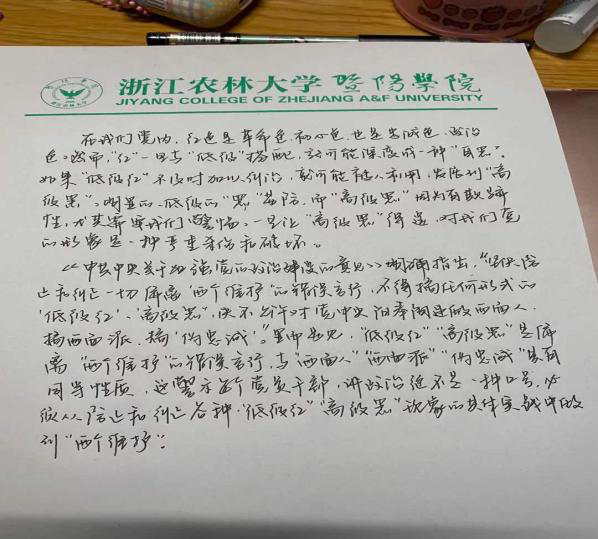 浙江农林大学暨陽學院
JIYANG COLLEGE OF ZHEJIANG A&F UNIVERSITY
在我们党内，红色是革命色、初心色，也是忠诚色、政治
色。然而，"红"一旦与"低级"搭配，就可能演变成一种"自黑"。
如果"低级红"不及时加以纠治，就可能被人利用，发展到"高
级黑"。明显的、低级的"黑"易防，而"高级黑"因为有欺骗
性，尤其需要我们警惕。一旦让"高级黑"得逞，对我们党
的形象是一种严重矮化和破坏。
《中共中央关于加强党的政治建设的意见》明确指出，"坚决防
止和纠正一切偏离'两个维护'的错误言行，不得搞任何形式的
'低级红'、'高级黑'，决不允许对党中央阳奉阴违做两面人、
搞两面派、搞'伪忠诚'。"由此可见，"低级红""高级黑"是偏
离"两个维护"的错误言行，与"两面人""两面派""伪忠诚"具有
同等性质，这警示各个党员干部，讲政治绝不是一种口号，必
须从防止和纠正各种"低级红""高级黑"现象的具体实战中做
到"两个维护"。